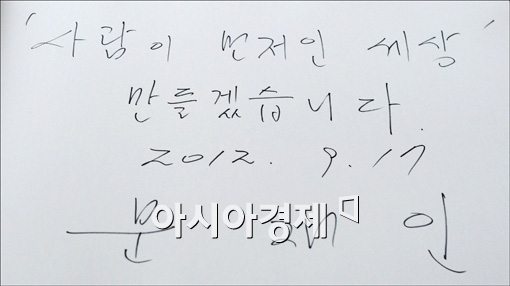 '사람이 먼저인 세상'
만들겠습니다.
2012. 9. 17
문 재 인
아시아경제